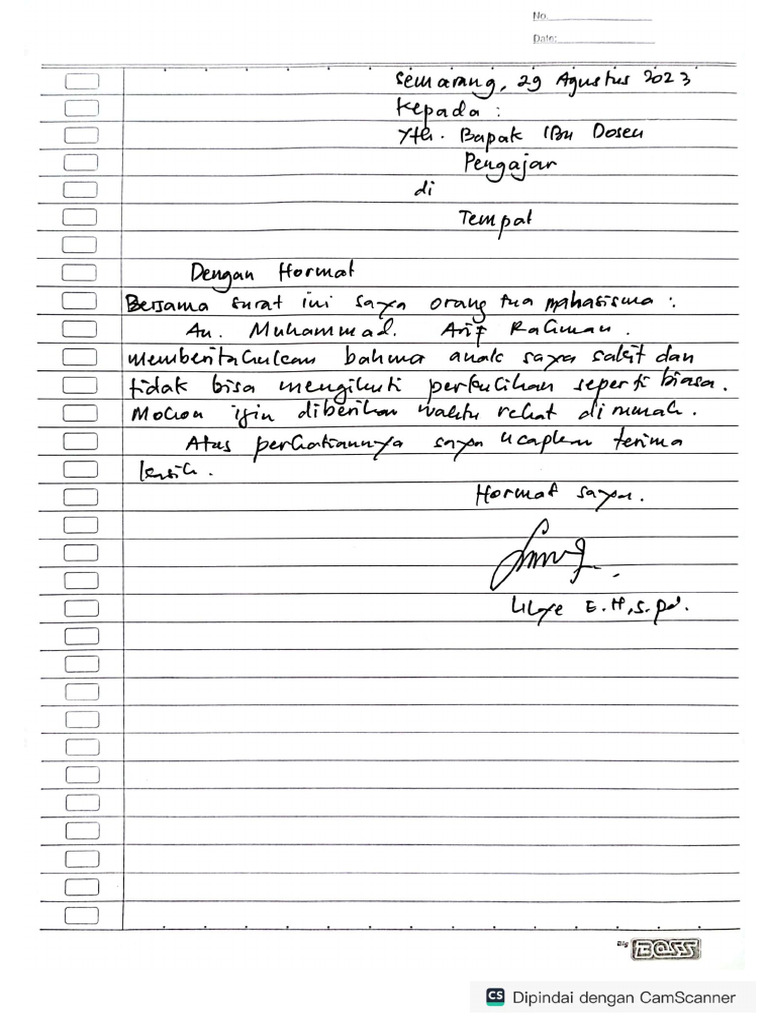 No.
Date:
Semarang, 29 Agustus 2023
Kepada :
Yth. Bapak Ibu Dosen
Pengajar
di
Tempat
Dengan Hormat
Bersama surat ini saya orang tua mahasiswa :
An. Muhammad. Arif Rahman.
memberitahukan bahwa anak saya sakit dan
tidak bisa mengikuti perkulihan seperti biasa.
Mohon ijin diberikan waktu rehat dirumah.
Atas perhatiannya saya ucapkan terima
kasih.
Hormat saya.
E.H, S.pd.
Big BOSS
CS Dipindai dengan CamScanner